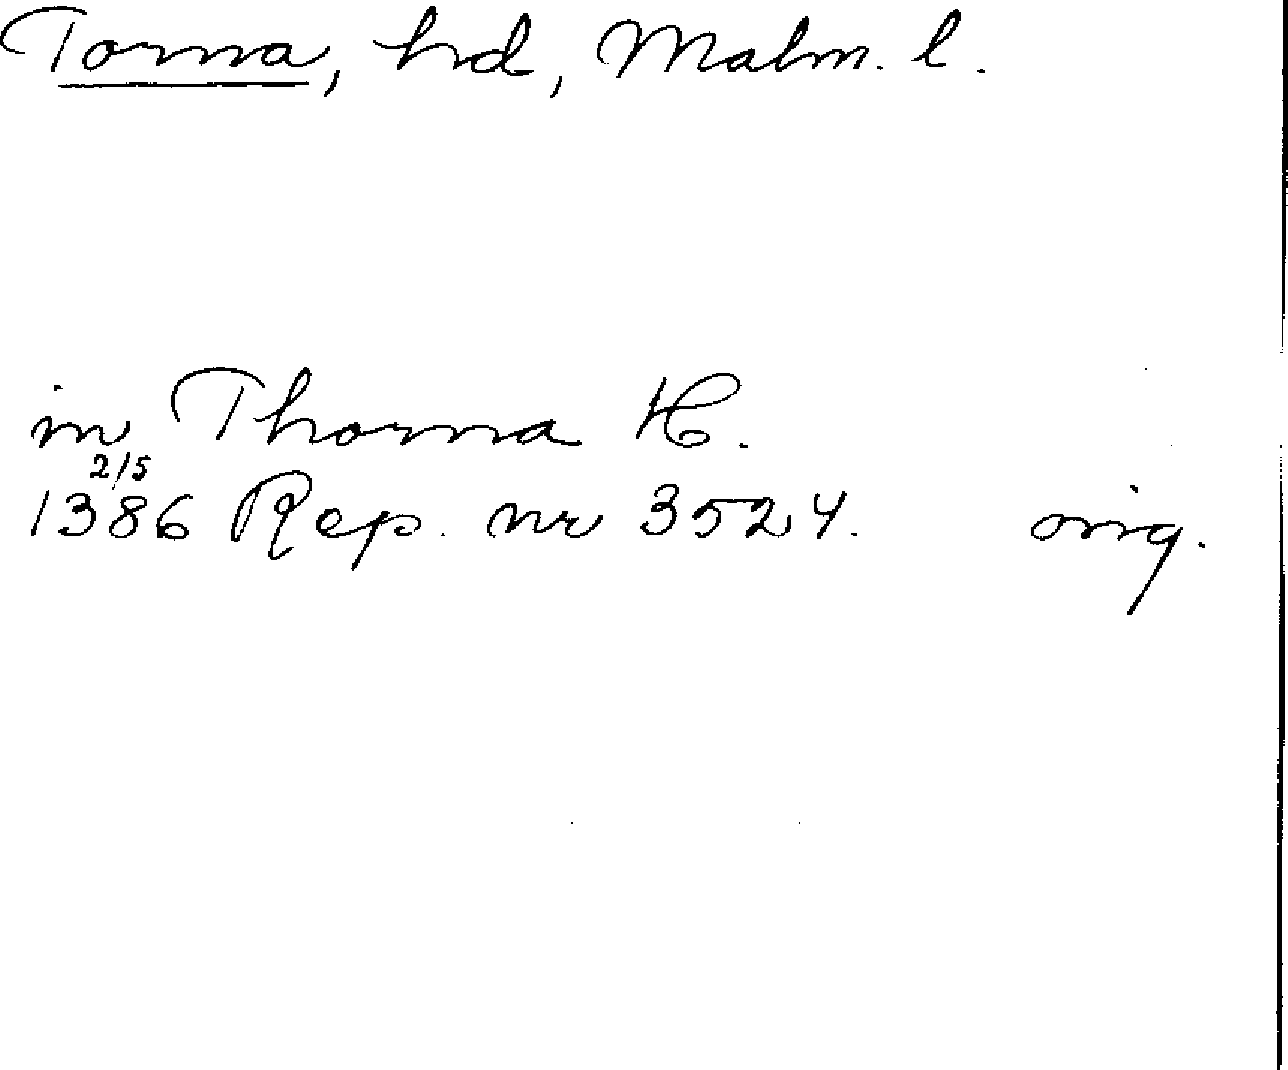 Torna, hd, Malm. l.
in Thorna H.
2/5
1386 Rep. nr 3524. orig.